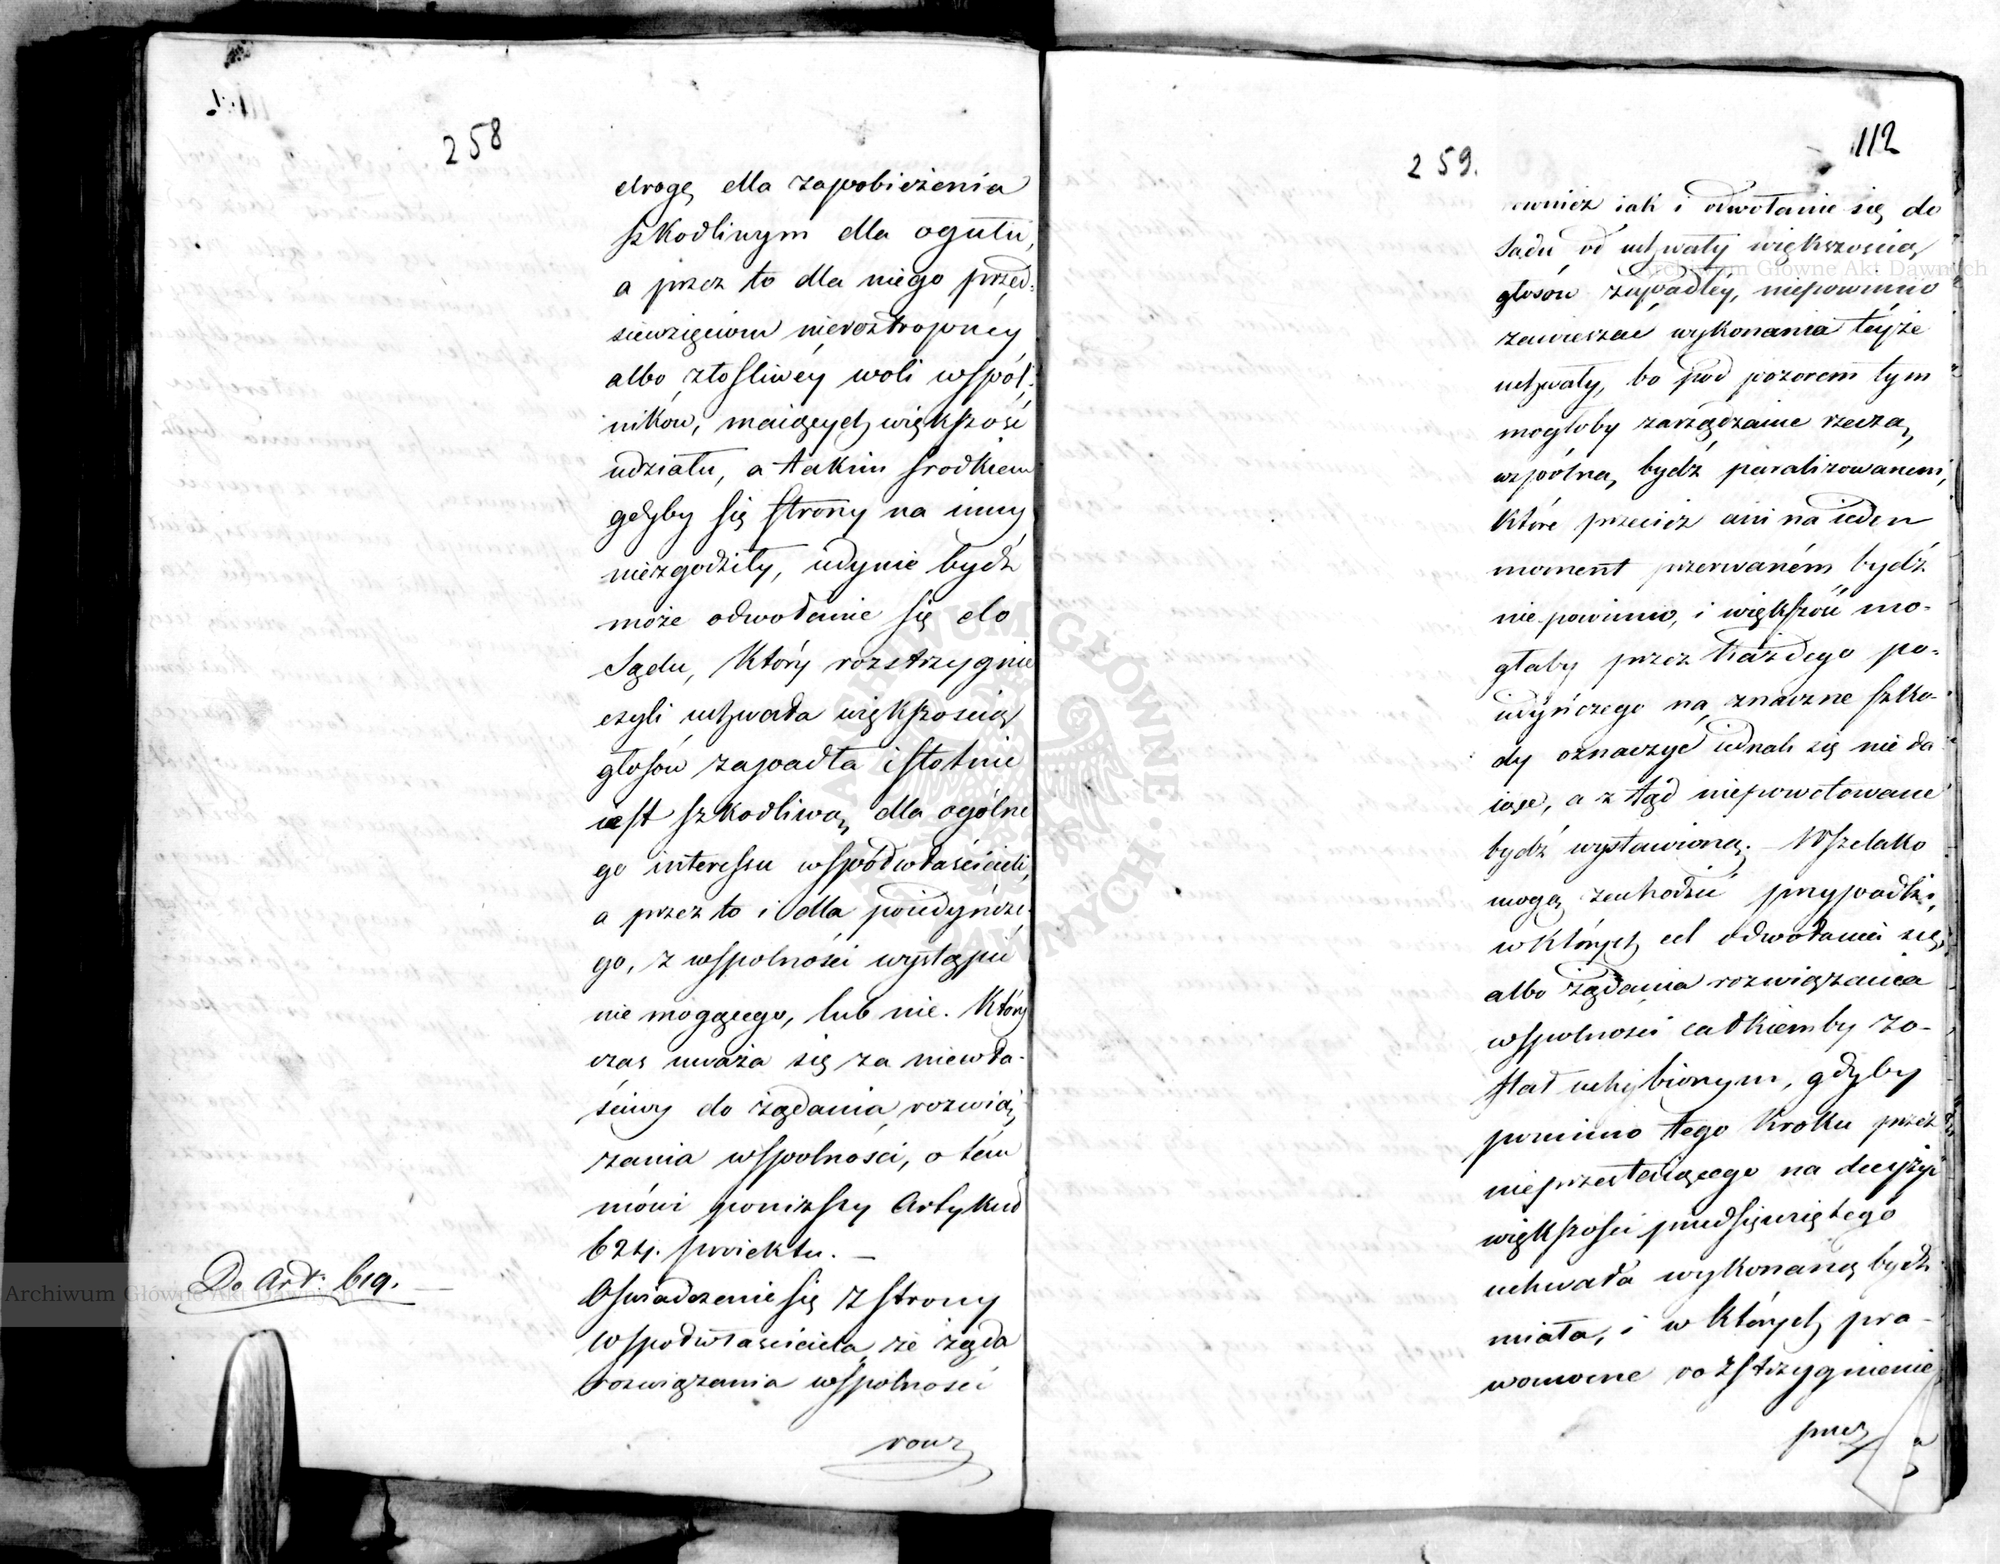 258
drogę dla zapobieżenia
szkodliwym dla ogułu,
a przez to dla niego przed:
siewzięciom nieroztropney
albo złośliwéy woli wspól:
ników, maiących większość
udziału, a takim srodkiem
gdyby się strony na inny
niezgodziły, iedynie bydź
może odwołanie się do
Sądu, który rozstrzygnie
czyli uchwała większością
głosów zapadła istotnie
iest szkodliwą dla ogólne
go interessu współwłaścicieli,
a przez to i dla poiedyńcze:
go, z wspolności wystąpić
nie mogącego, lub nie. Który
czas uważa się za niewła-
ściwy do żądania rozwią:
zania wspolności, o tém
mówi poniższy Artykuł
624. proiektu. —
De Art: 619. —
Oświadczenie się z strony
Wspołwłasciciela, że żąda
rozwiązania wspolności
rowz
259.
112
rownież iak i odwołanie się do
Sadu od uchwały większością
głosów zapadłéy, niepowinno
zawieszać wykonania teyże
uchwały, bo pod pozorem tym
mogłoby zarządzanie rzeczą
wspólną, bydź paraliżowanem,
które przecież ani na ieden
moment przerwaném bydź
nie powinno, i większość mo-
głaby przez każdego po-
iedyńczego na znaczne szko-
dy oznaczyć iednak się nie da
iące, a z tąd niepowetowane
bydź wystawioną. — Wszelako
mogą zachodzić przypadki,
w których cel odwołania się,
albo żądania rozwiązania
wspolności całkiemby zo-
stał uchybionym, gdyby
pomimo tego kroku przez
nieprzestaiącego na decyzyi
większości przedsięwziętego
uchwała wykonaną bydź
miała, i w których pra-
womocne rozstrzygnienie
przez
Archiwum Główne Akt Dawnych
Archiwum Główne Akt Dawnych
ARCHIWUM GŁÓWNE AKT DAWNYCH